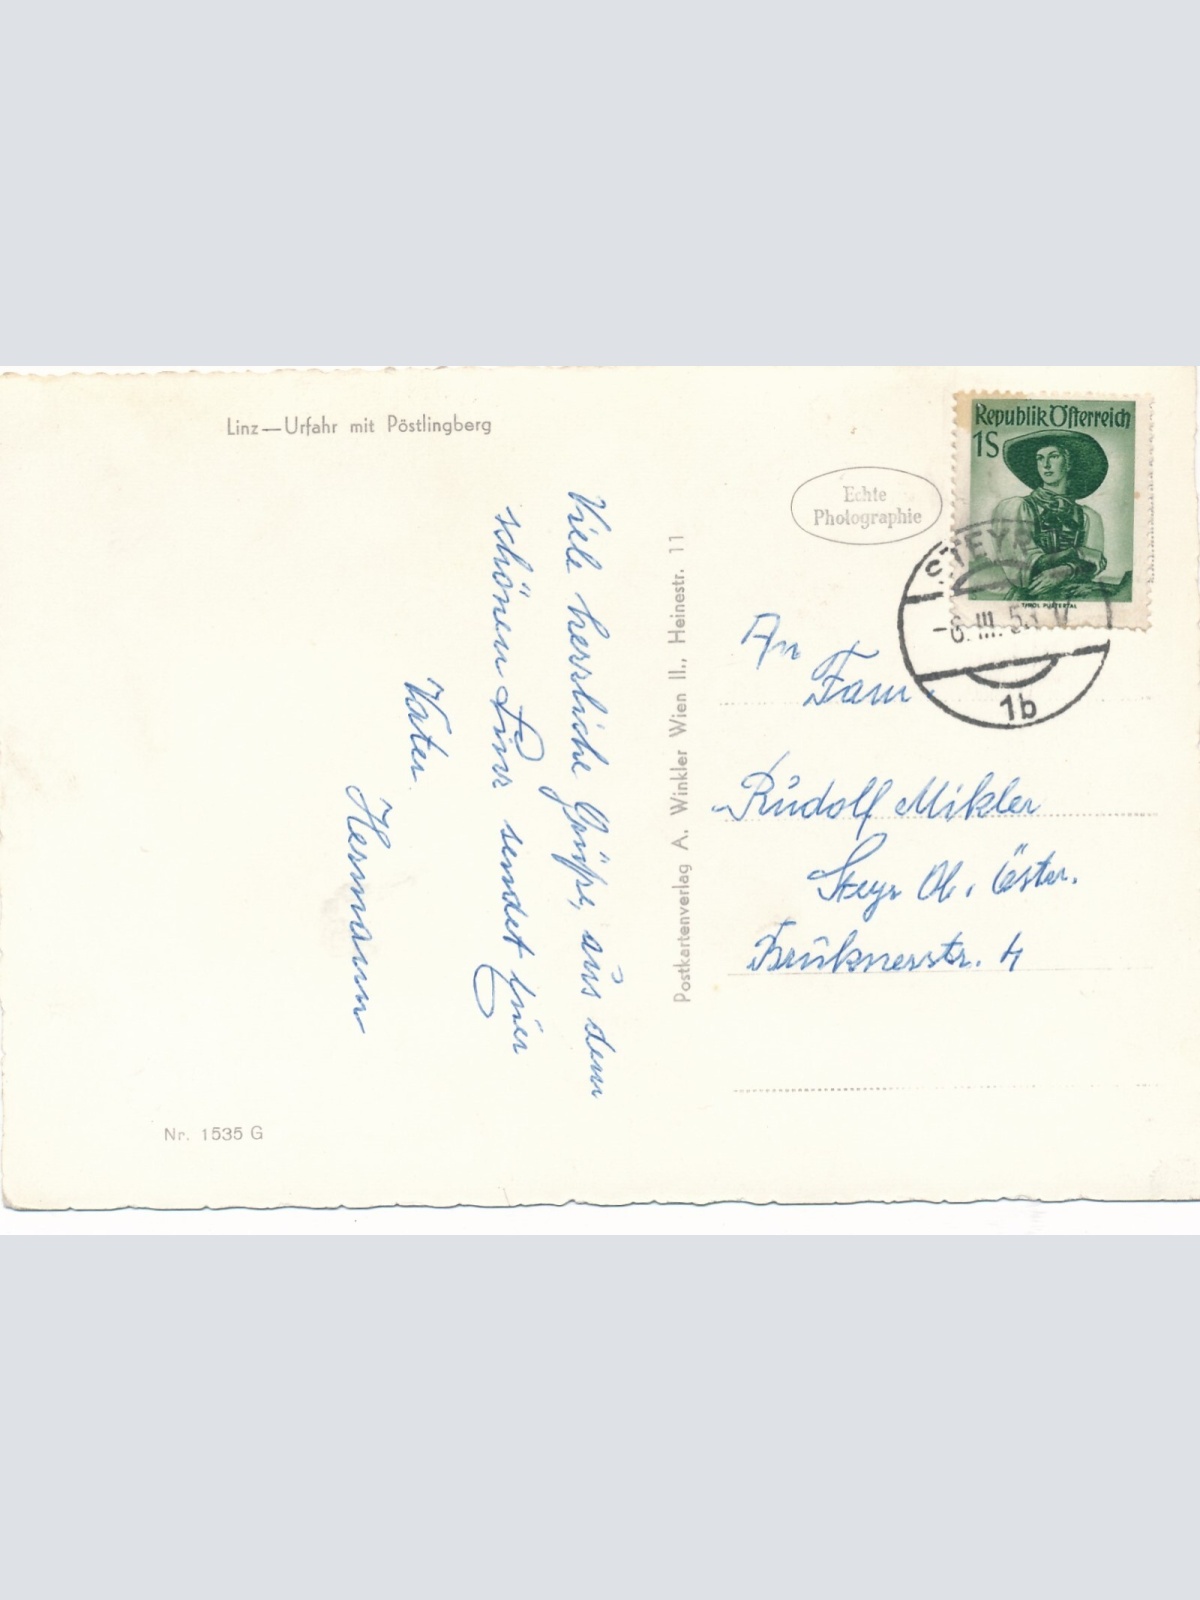 Linz—Urfahr mit Pöstlingberg
Viele herrliche Grüße, aus dem
schönen Linz sendet
Vater
Hermann
Nr. 1535 G
Postkartenverlag A. Winkler Wien II., Heinestr. 11
Echte
Photographie
Republik Österreich
1S
TIROL PUSTERTAL
STEYR
-6. III. 5
1b
An
Fam
Rudolf Mikler
Steyr Ob. Öster.
Bruknerstr. 4